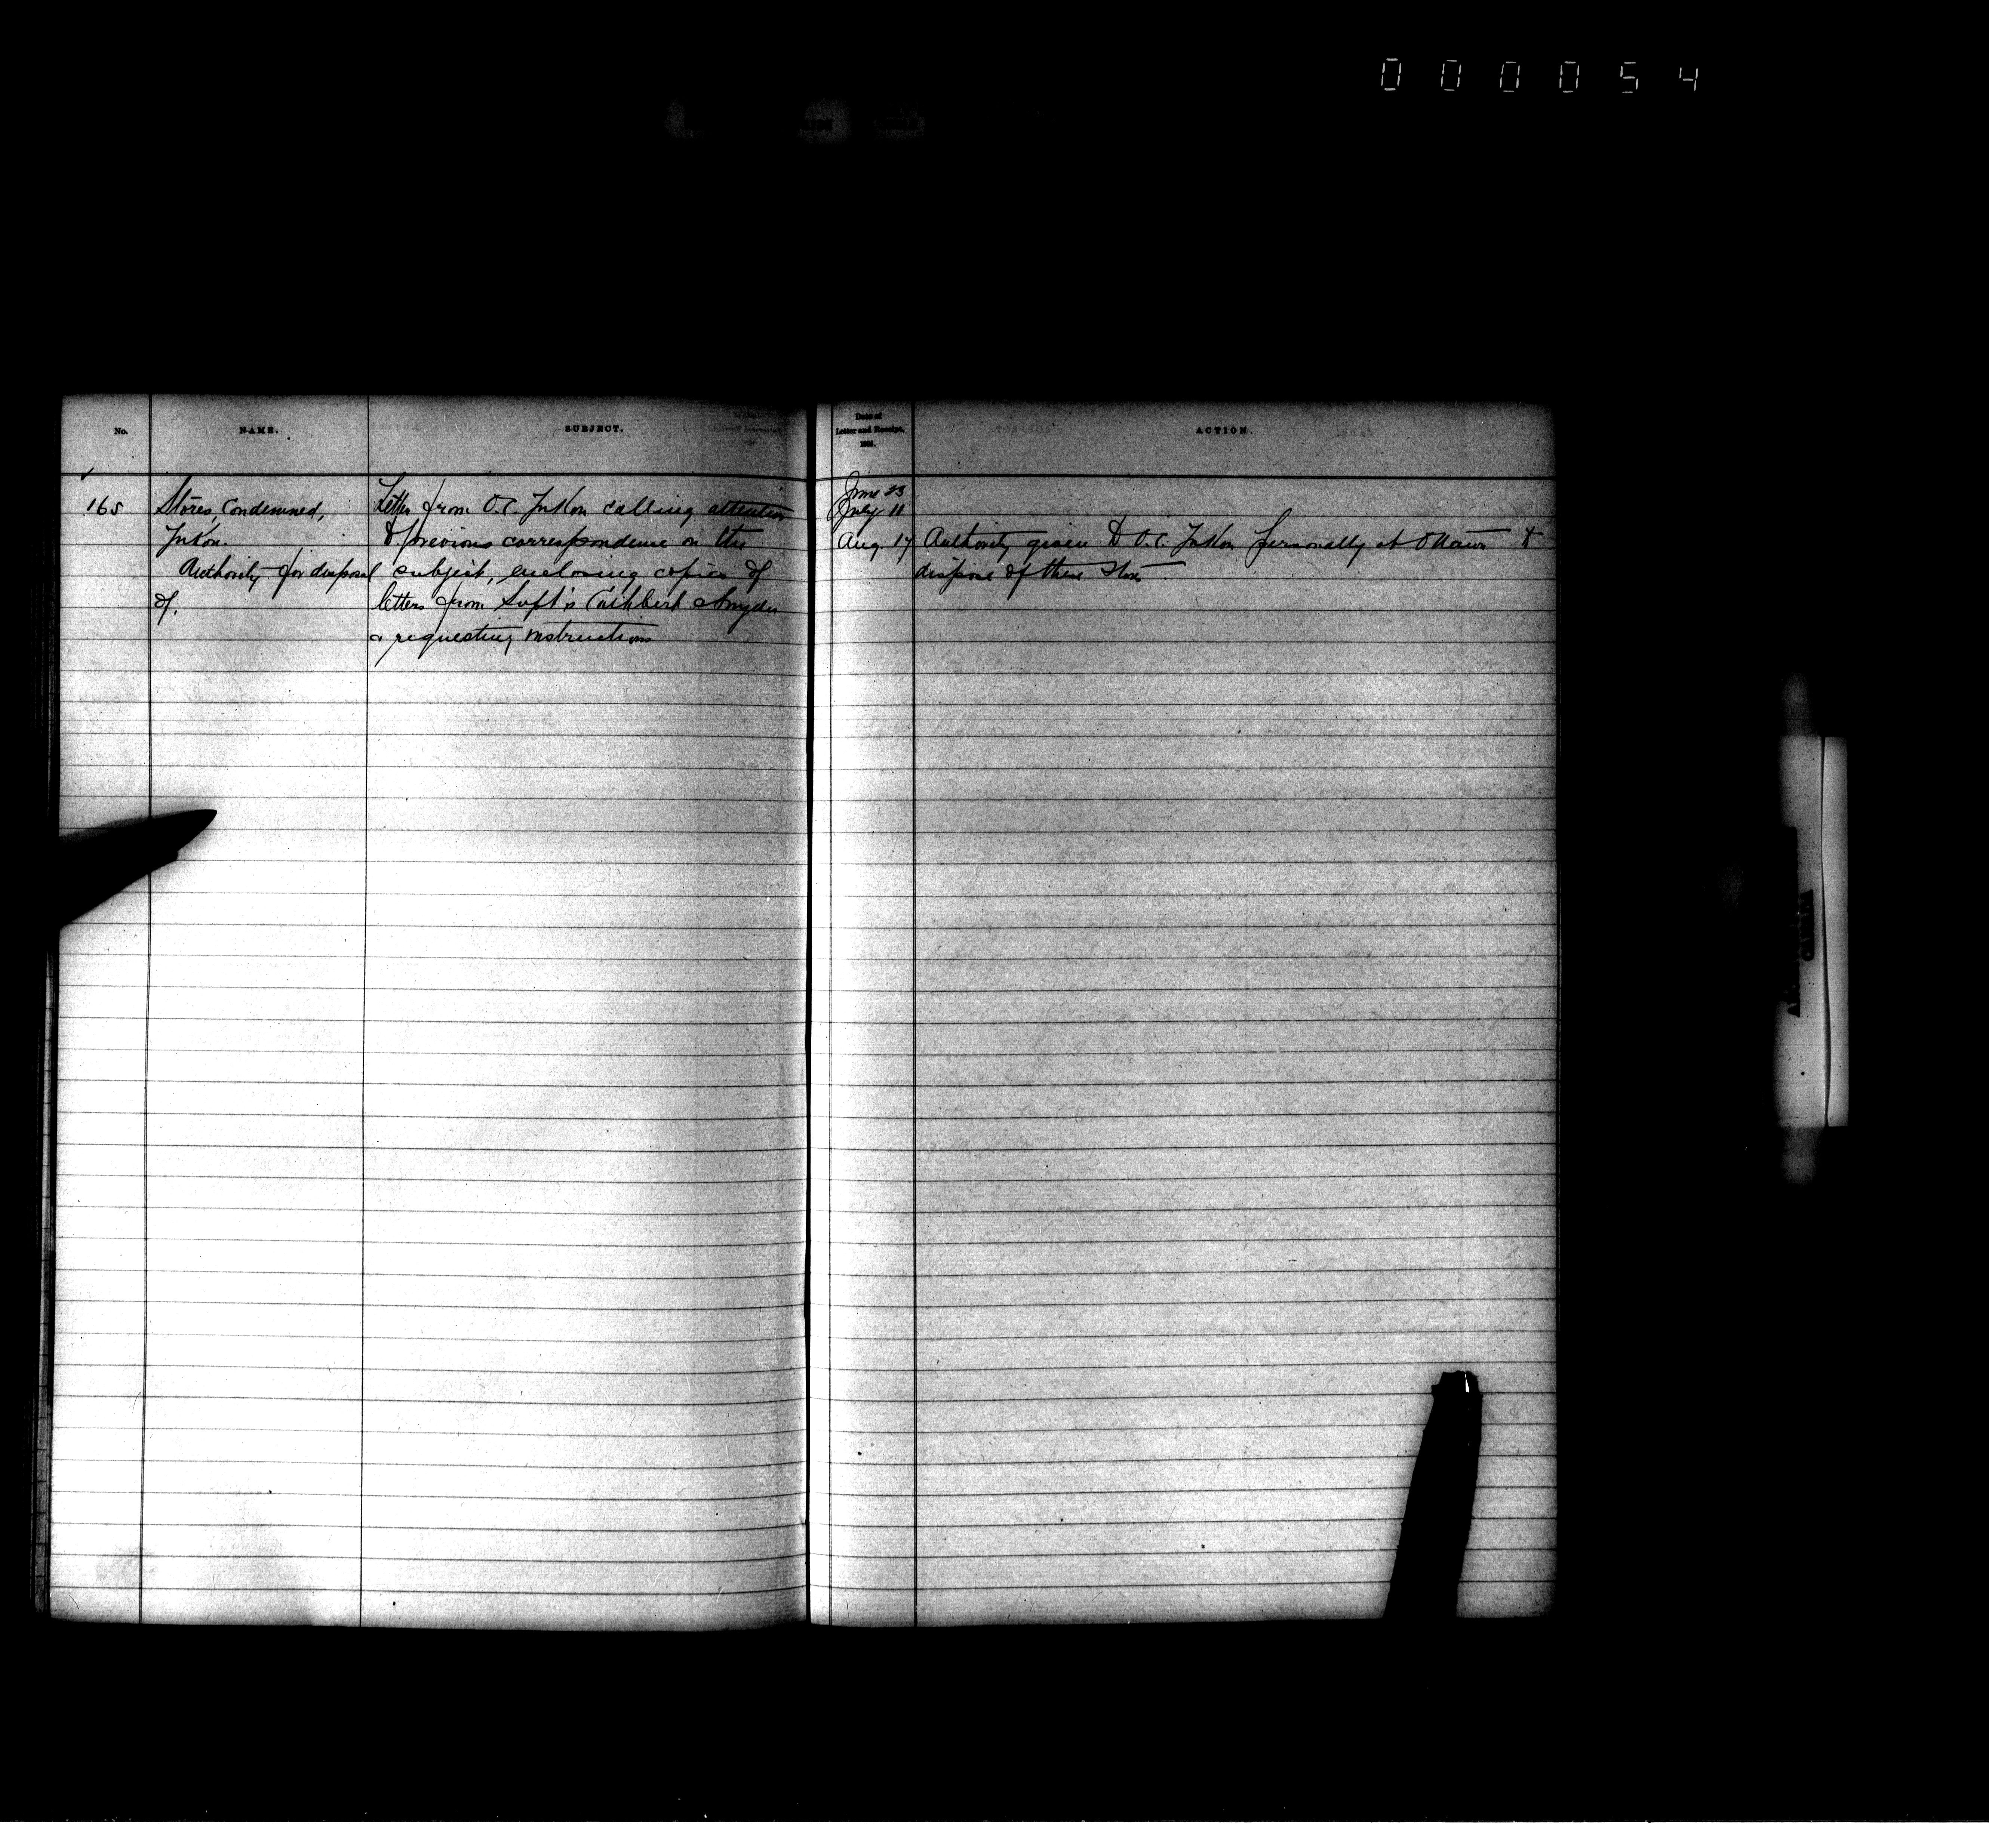 000054
No.
NAME.
SUBJECT.
165
Stores, Condemned,
Yukon.
Authority for disposal
of.
Letter from O.C. Yukon calling attention
to previous correspondence on the
subject, enclosing copies of
letters from Supt's Cuthbert & Snyder
& requesting instructions
Date of
Letter and Receipt,
ACTION.
June 23
July 11
Aug. 17 Authority given to O.C. Yukon personally at Ottawa to
dispose of these stores.